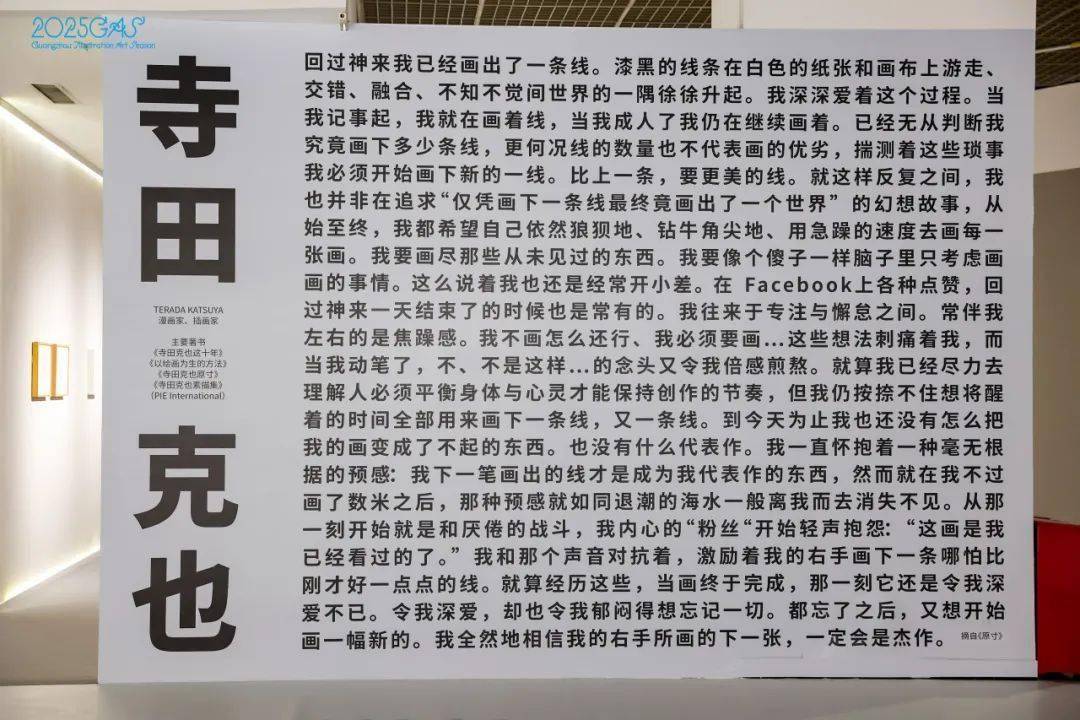 2025GAS
Guangzhou Illustration Art Season
寺田克也
TERADA KATSUYA
漫画家、插画家
主要著书
《寺田克也这十年》
《以绘画为生的方法》
《寺田克也原寸》
《寺田克也素描集》
（PIE International）
回过神来我已经画出了一条线。漆黑的线条在白色的纸张和画布上游走、
交错、融合、不知不觉间世界的一隅徐徐升起。我深深爱着这个过程。当
我记事起，我就在画着线，当我成人了我仍在继续画着。已经无从判断我
究竟画下多少条线，更何况线的数量也不代表画的优劣，揣测着这些琐事
我必须开始画下新的一线。比上一条，要更美的线。就这样反复之间，我
也并非在追求“仅凭画下一条线最终竟画出了一个世界” 的幻想故事，从
始至终，我都希望自己依然狼狈地、钻牛角尖地、用急躁的速度去画每一
张画。我要画尽那些从未见过的东西。我要像个傻子一样脑子里只考虑画
画的事情。这么说着我也还是经常开小差。在 Facebook上各种点赞，回
过神来一天结束了的时候也是常有的。我往来于专注与懈怠之间。常伴我
左右的是焦躁感。我不画怎么还行、我必须要画...这些想法刺痛着我，而
当我动笔了，不、不是这样...的念头又令我倍感煎熬。就算我已经尽力去
理解人必须平衡身体与心灵才能保持创作的节奏，但我仍按捺不住想将醒
着的时间全部用来画下一条线，又一条线。到今天为止我也还没有怎么把
我的画变成了不起的东西。也没有什么代表作。我一直怀抱着一种毫无根
据的预感：我下一笔画出的线才是成为我代表作的东西，然而就在我不过
画了数米之后，那种预感就如同退潮的海水一般离我而去消失不见。从那
一刻开始就是和厌倦的战斗，我内心的“粉丝“开始轻声抱怨：“这画是我
已经看过的了。” 我和那个声音对抗着，激励着我的右手画下一条哪怕比
刚才好一点点的线。就算经历这些，当画终于完成，那一刻它还是令我深
爱不已。令我深爱，却也令我郁闷得想忘记一切。都忘了之后，又想开始
画一幅新的。我全然地相信我的右手所画的下一张，一定会是杰作。 摘自《原寸》